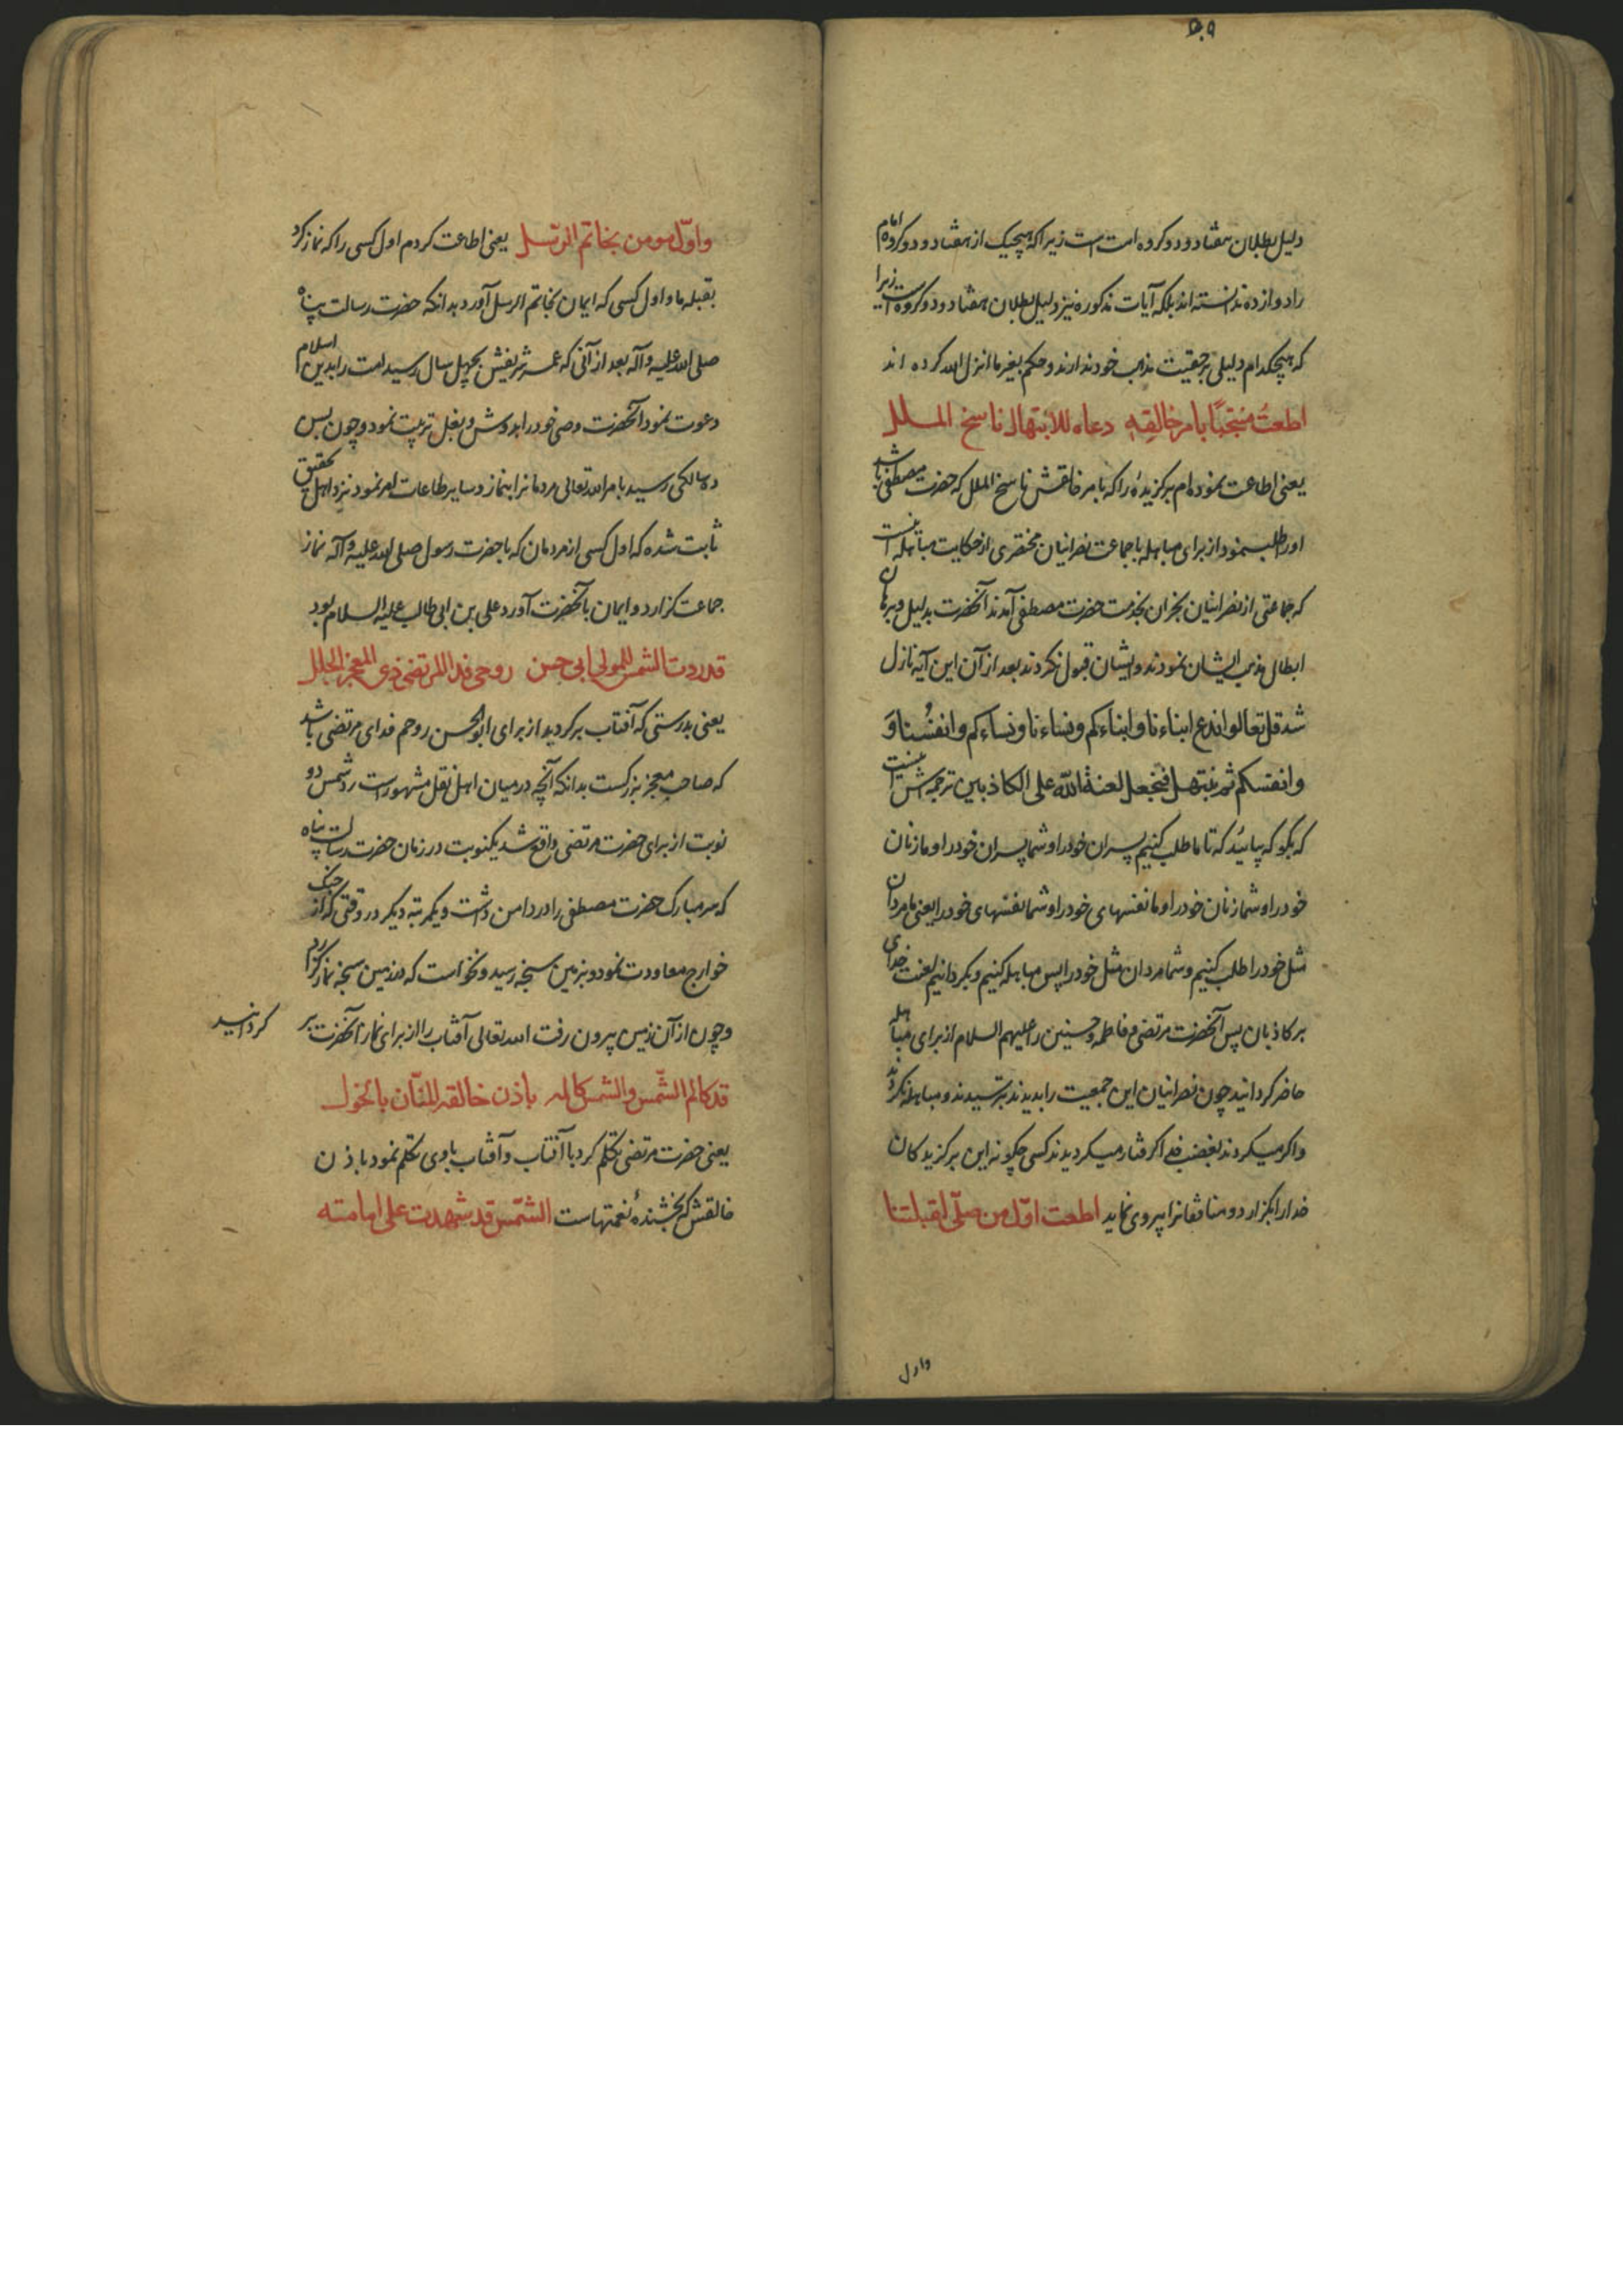 ۵۰۹
دلیل بطلان هفتاد و دو کروه امت است زیرا که هیچیک از هفتاد و دو کروه امام
را دوازده ندانسته اند بلکه آیات مذکوره نیز دلیل بطلان هفتاد و دو کروه است زیرا
که هیچکدام دلیلی بر حقیت مذهب خود ندارند و حکم بغیر ما انزل الله کرده اند
اطعتُ منتجبًا بامر خالقِهِ دعاه للابتهال ناسخ الملل
یعنی اطاعت نموده ام برکزیدهٔ را که بامر خالقش ناسخ الملل که حضرت مصطفی باشد
او را طلب نمود از برای مباهله با جماعت نصرانیان مختصری از حکایت مباهله اینست
که جماعتی از نصرانیان نجران بخدمت حضرت مصطفی آمدند آنحضرت بدلیل و برهان
ابطال مذهب ایشان نمودند و ایشان قبول نکردند بعد از آن این آیه نازل
شد قل تعالوا ندع ابناءنا و ابناءکم و نساءنا و نساءکم و انفسُنا وَ
وانفسکم ثم نبتهل فنجعل لعنة الله علی الکاذبین ترجمه اش اینست
که بکو که بیائید که تا ما طلب کنیم پسران خود را و شما پسران خود را و ما زنان
خود را و شما زنان خود را و ما نفسهای خود را و شما نفسهای خود را یعنی ما مردان
مثل خود را طلب کنیم و شما مردان مثل خود را پس مباهله کنیم و بکردانیم لعنت خدای
بر کاذبان پس آنحضرت مرتضی و فاطمه و حسنین را علیهم السلام از برای مباهله
حاضر کردانید چون نصرانیان این جمعیت را بدیدند بترسیدند و مباهله نکردند
و اکر میکردند بغضب خدا کرفتار میکردیدند کسی چکونه این برکزیدکان
خدا را بکزارد و منافقانرا پیروی نماید اطعت اوّل من صلّی لقبلتنا
و اول
و اوّل مومن بخاتم الرسل یعنی اطاعت کردم اول کسی را که نماز کرد
بقبله ما و اول کسی که ایمان بخاتم الرسل آورد بدانکه حضرت رسالت پناه
صلی الله علیه و آله بعد از آنی که عمر شریفش بچهل سال رسید امت را بدین اسلام
دعوت نمود آنحضرت وصی خود را بدوش و بغل تربیت نمود و چون بسن
ده سالکی رسید بامر الله تعالی مردمانرا بنماز و سایر طاعات امر نمود نزد اهل تحقیق
ثابت شده که اول کسی از مردمان که با حضرت رسول صلی الله علیه و آله نماز
جماعت کزارد و ایمان بآنحضرت آورد علی بن ابی طالب علیه السلام بود
قد ردت الشمس للمولی ابی حسن روحی فدا المرتضی ذی المعجز الجلل
یعنی بدرستی که آفتاب برکردید از برای ابو الحسن روحم فدای مرتضی باشد
که صاحب معجز بزرکست بدانکه آنچه در میان اهل نقل مشهور است رد شمس دو
نوبت از برای حضرت مرتضی واقع شد یکنوبت در زمان حضرت رسالت پناه
که سر مبارک حضرت مصطفی را در دامن داشت و یکمرتبه دیکر در وقتی که از جنک
خوارج معاودت نمود و بزمین سبخه رسید و نخواست که در زمین سبخه نماز کزارد
و چون از آن زمین بیرون رفت الله تعالی آفتاب را از برای نماز آنحضرت بر کردانید
قد کالم الشمس والشمس کالمه باذن خالقه المنّان بالخول
یعنی حضرت مرتضی تکلم کرد با آفتاب و آفتاب با وی تکلم نمود باذن
خالقش که بخشندهٔ نعمتهاست الشمس قد شهدت علی امامته